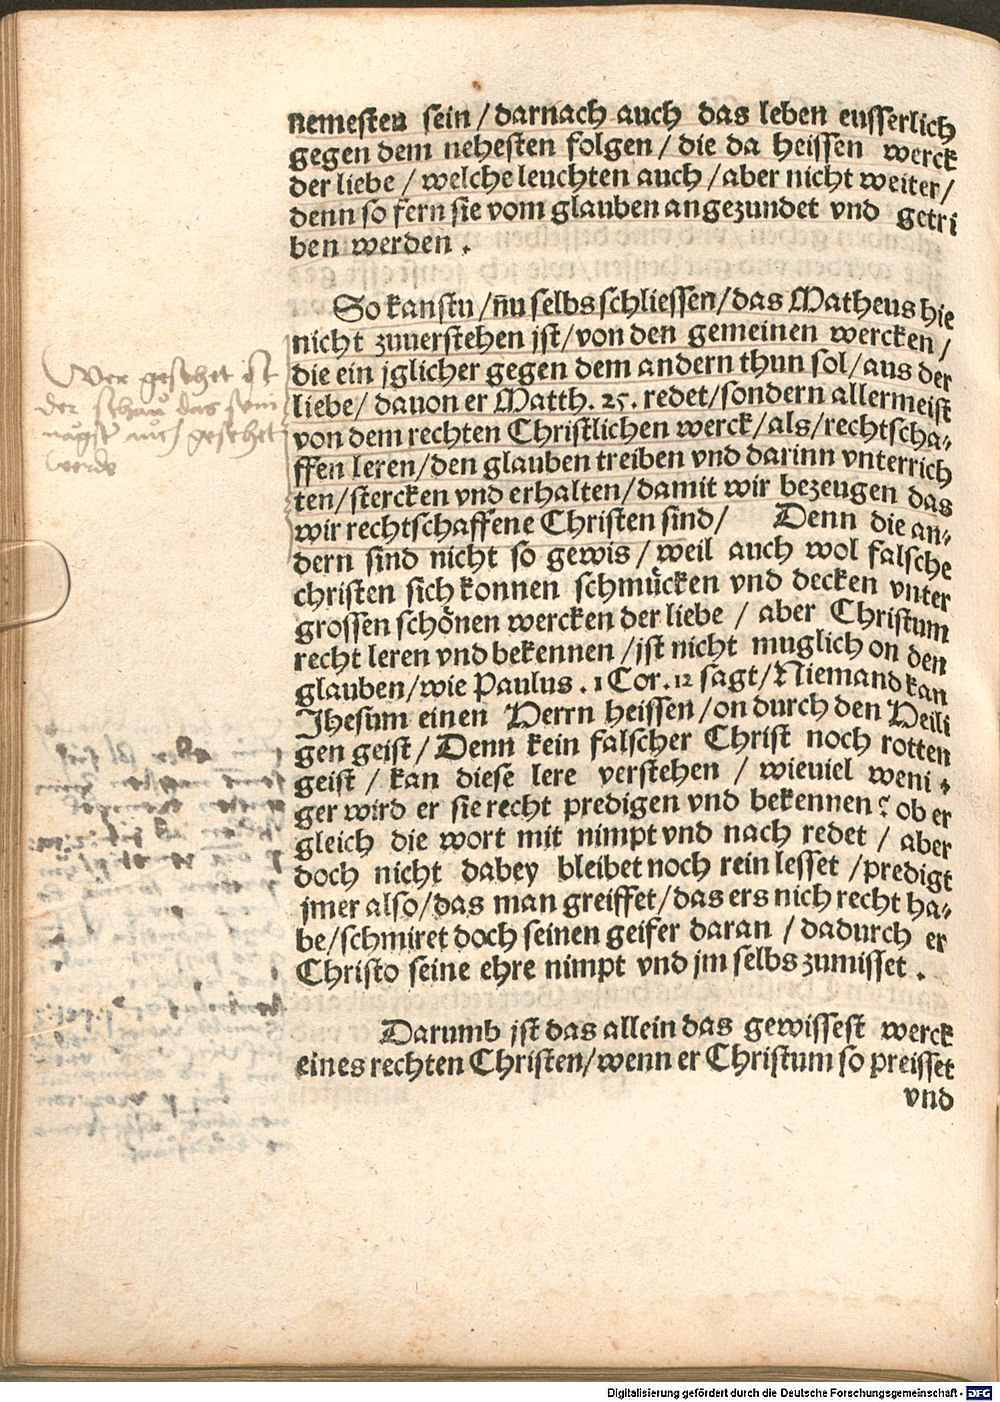 nemesten sein / darnach auch das leben eusserlich
gegen dem nehesten folgen / die da heissen werck
der liebe / welche leuchten auch / aber nicht weiter /
denn so fern sie vom glauben angezundet vnd getri
ben werden .
So kanstu / nu selbs schliessen / das Matheus hie
nicht zuuerstehen jst / von den gemeinen wercken /
die ein jglicher gegen dem andern thun sol / aus der
liebe / dauon er Matth. 25. redet / sondern allermeist
von dem rechten Christlichen werck / als / rechtscha-
ffen leren / den glauben treiben vnd darinn vnterrich
ten / stercken vnd erhalten / damit wir bezeugen das
wir rechtschaffene Christen sind / Denn die an-
dern sind nicht so gewis / weil auch wol falsche
christen sich konnen schmücken vnd decken vnter
grossen schönen wercken der liebe / aber Christum
recht leren vnd bekennen / jst nicht muglich on den
glauben / wie Paulus . 1 Cor. 12 sagt / Niemand kan
Jhesum einen Herrn heissen / on durch den Heili
gen geist / Denn kein falscher Christ noch rotten
geist / kan diese lere verstehen / wieuiel weni-
ger wird er sie recht predigen vnd bekennen? ob er
gleich die wort mit nimpt vnd nach redet / aber
doch nicht dabey bleibet noch rein lesset / predigt
jmer also / das man greiffet / das ers nich recht ha-
be / schmiret doch seinen geifer daran / dadurch er
Christo seine ehre nimpt vnd jm selbs zumisset .
Darumb jst das allein das gewissest werck
eines rechten Christen / wenn er Christum so preisset
vnd
der das sein
auch geschet
Digitalisierung gefördert durch die Deutsche Forschungsgemeinschaft - DFG